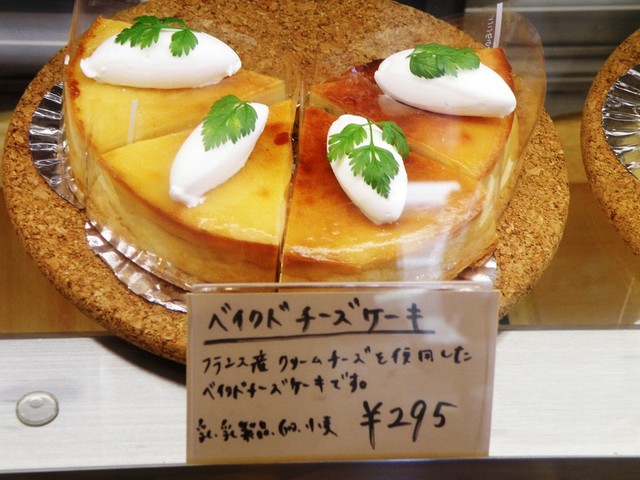 ベイクドチーズケーキ
フランス産 クリームチーズを使用した
ベイクドチーズケーキです。
乳、乳製品、卵、小麦 ¥295